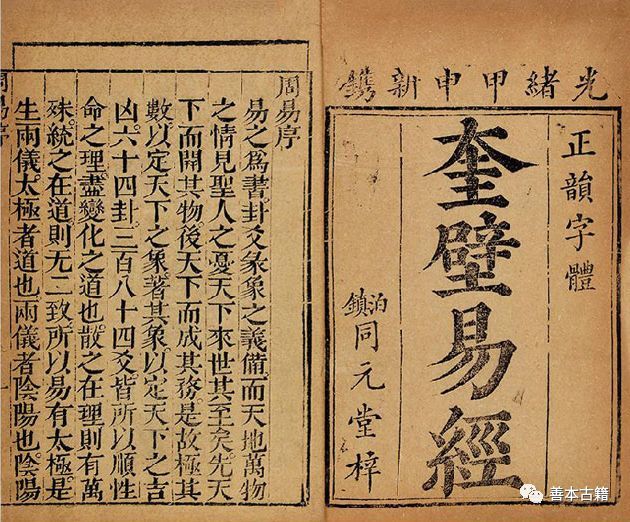 光緒甲申新鐫
正韻字體
奎壁易經
泊鎮同元堂梓
周易序
易之爲書卦爻彖象之義備而天地萬物
之情見聖人之憂天下來世其至矣先天
下而開其物後天下而成其務是故極其
數以定天下之象著其象以定天下之吉
凶六十四卦三百八十四爻皆所以順性
命之理盡變化之道也散之在理則有萬
殊統之在道則无二致所以易有太極是
生兩儀太極者道也兩儀者陰陽也陰陽
善本古籍